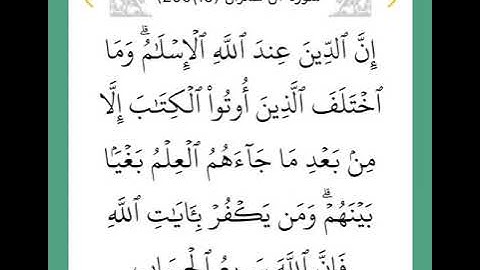 إِنَّ ٱلدِّينَ عِندَ ٱللَّهِ ٱلْإِسْلَـٰمُ ۗ وَمَا
ٱخْتَلَفَ ٱلَّذِينَ أُوتُوا۟ ٱلْكِتَـٰبَ إِلَّا
مِنۢ بَعْدِ مَا جَآءَهُمُ ٱلْعِلْمُ بَغْيًۢا
بَيْنَهُمْ ۗ وَمَن يَكْفُرْ بِـَٔايَـٰتِ ٱللَّهِ
فَإِنَّ ٱللَّهَ سَرِيعُ ٱلْحِسَابِ